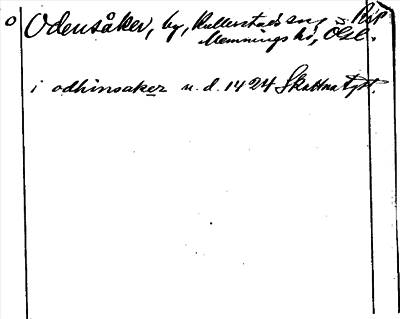 Odensåker, by, Kullerstads sn,
Memmings hd, Ögl.
i odhinsaker u. d. 1424 Skattna